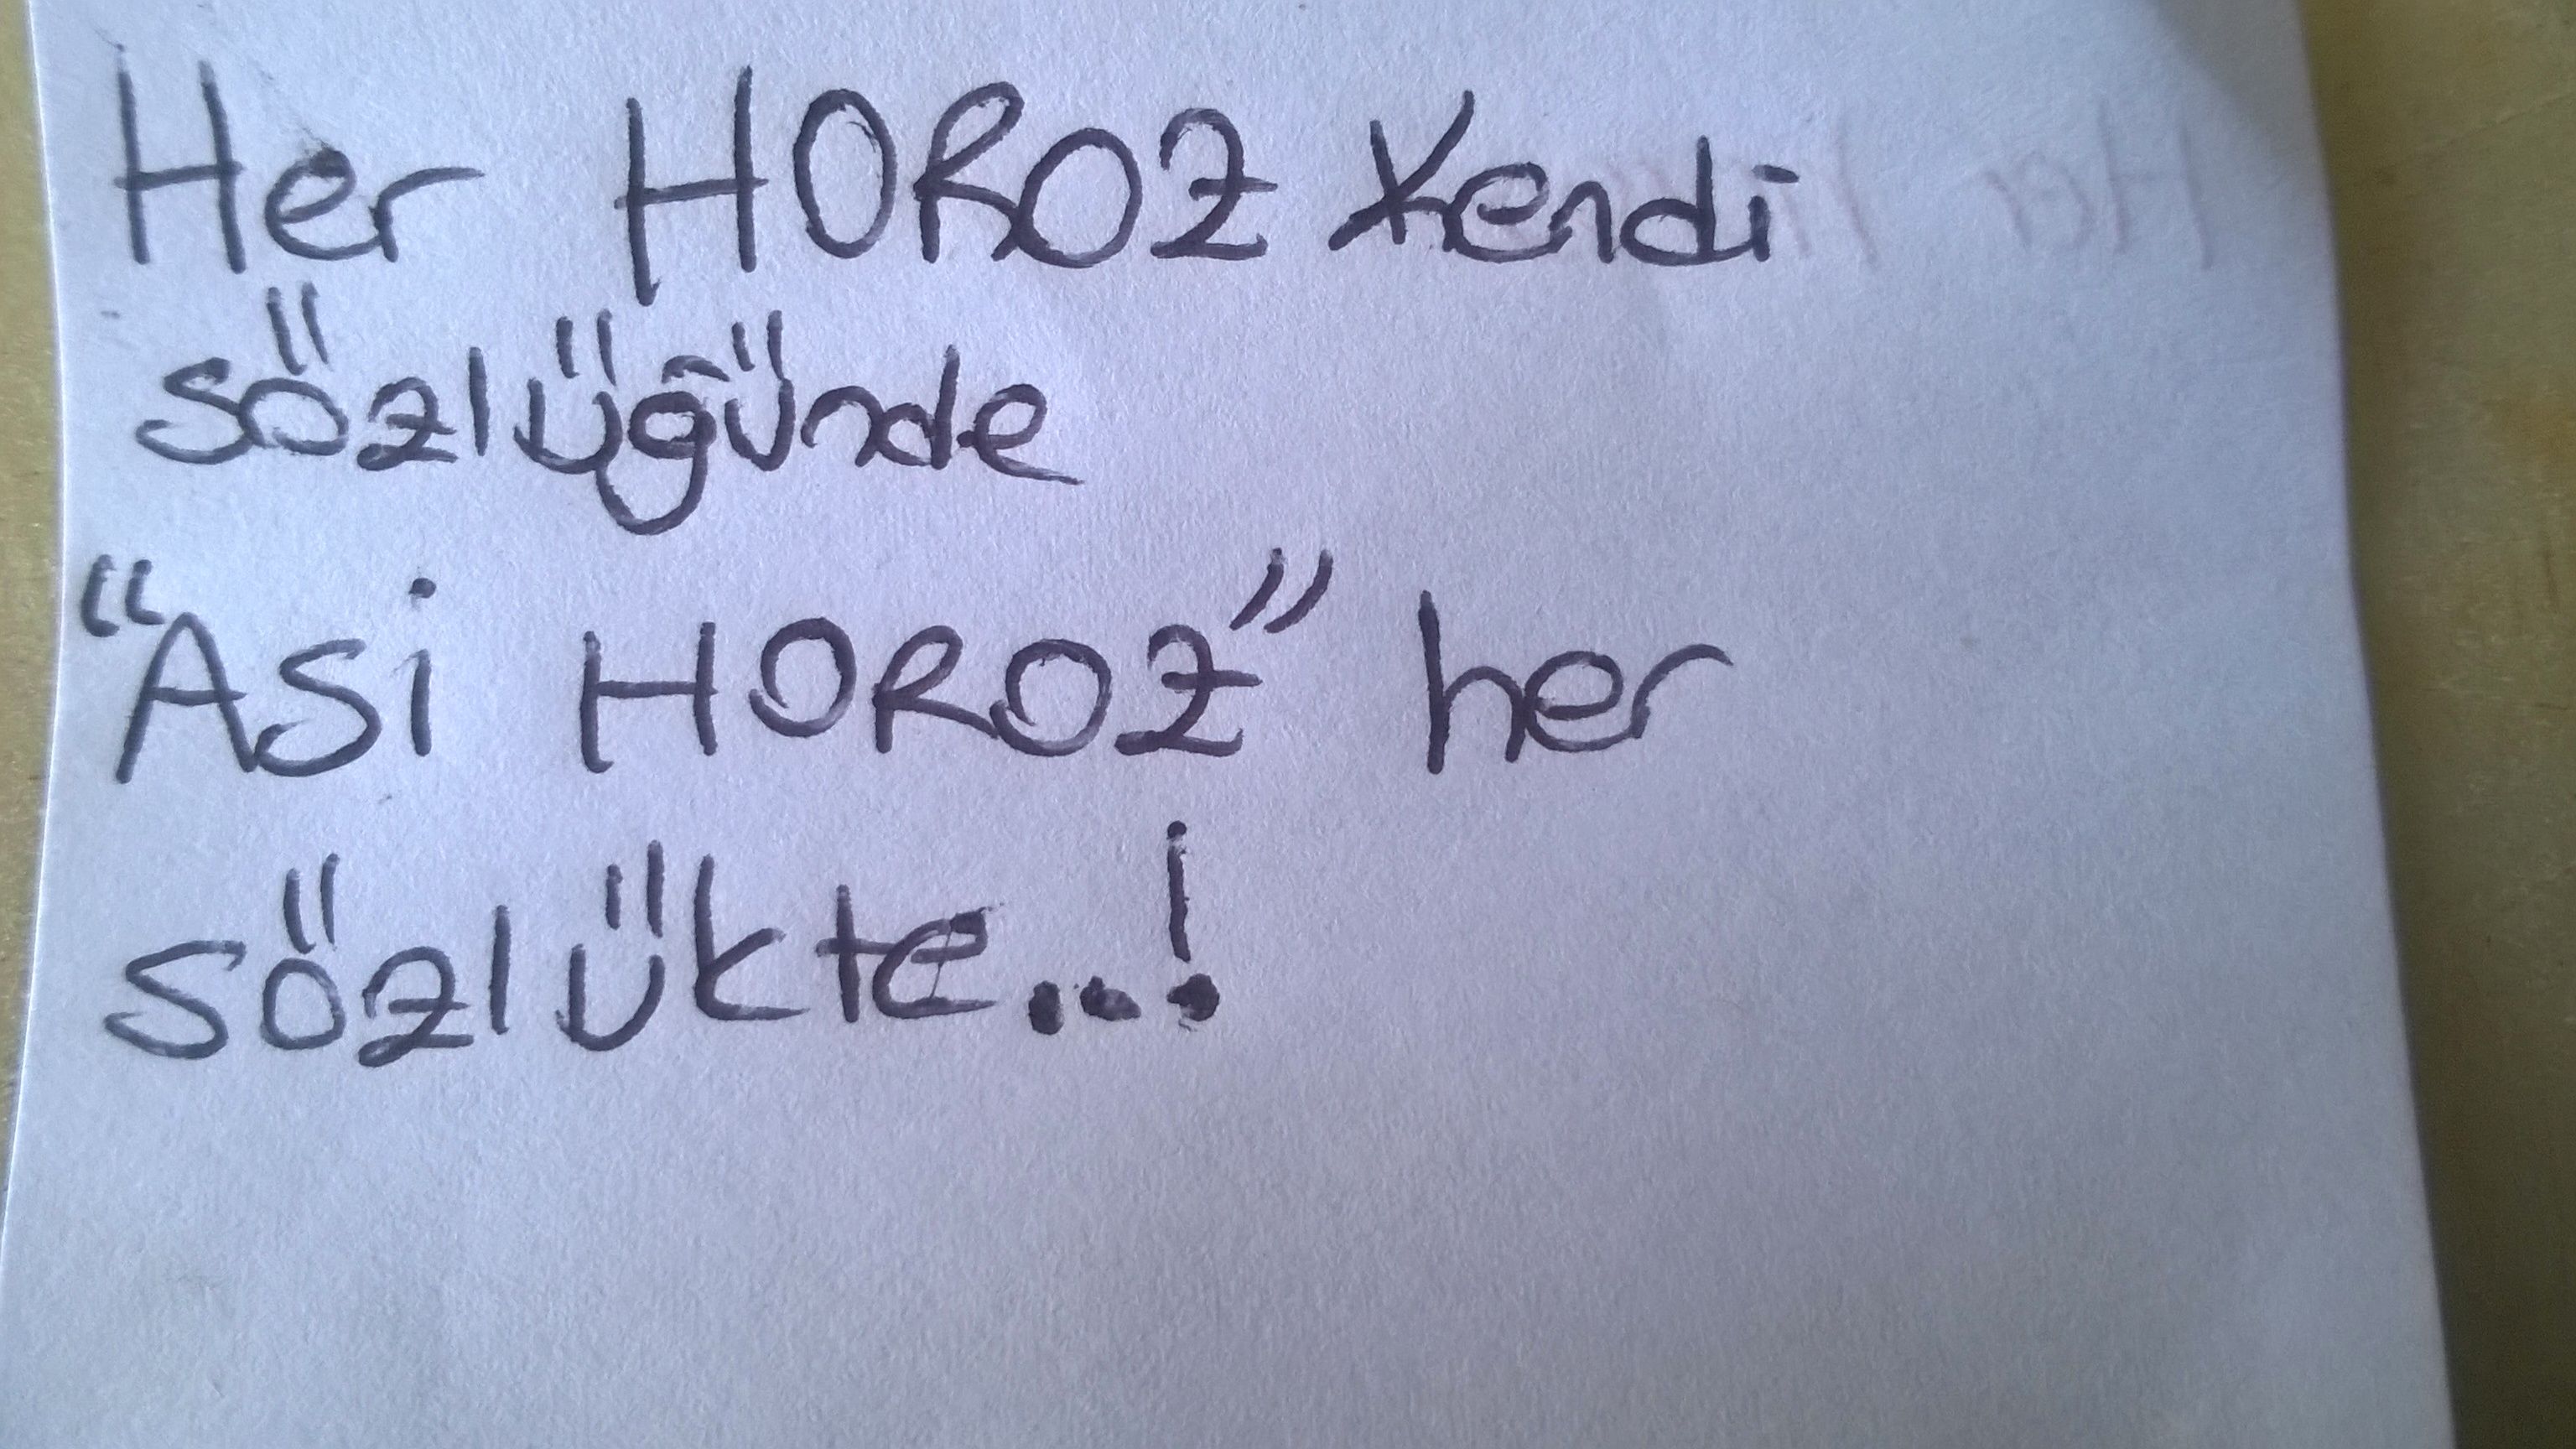 Her HOROZ Kendi
sözlüğünde
"ASi HOROZ" her
sözlükte..!